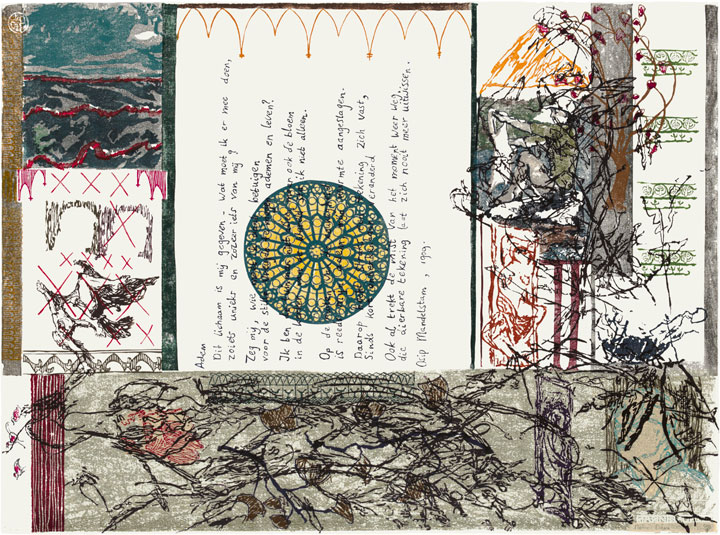 Adem
Dit lichaam is mij gegeven - wat moet ik er mee doen,
zoiets unieks en zozeer iets van mij?
Zeg mij, wie betuigen
voor de ademen en leven?
Ik ben, ook de bloem
in de ik niet alleen.
Op de
is reeds aangeslagen.
Daarop tekening zich vast,
sinds kort veranderd
Ook al treft de mist van het moment weer weg
die dierbare tekening laat zich nooit meer uitwissen.
Osip Mandelstam, 1909.